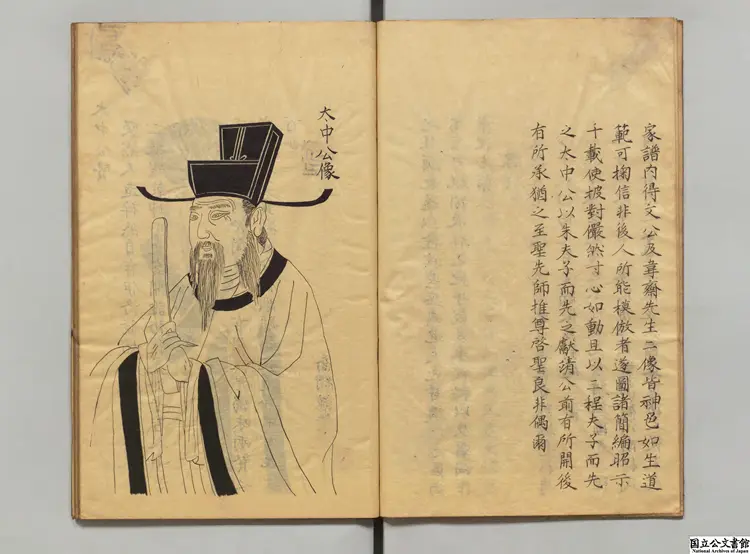 家譜內得文公及韋齋先生二像皆神邑如生道
範可掬信非後人所能模倣者遂圖諸簡編昭示
千載使披對儼然寸心如動且以二程夫子而先
之太中公以朱夫子而先之獻靖公前有所開後
有所承猶之至聖先師推尊啓聖良非偶爾
太中公像
国立公文書館
National Archives of Japan